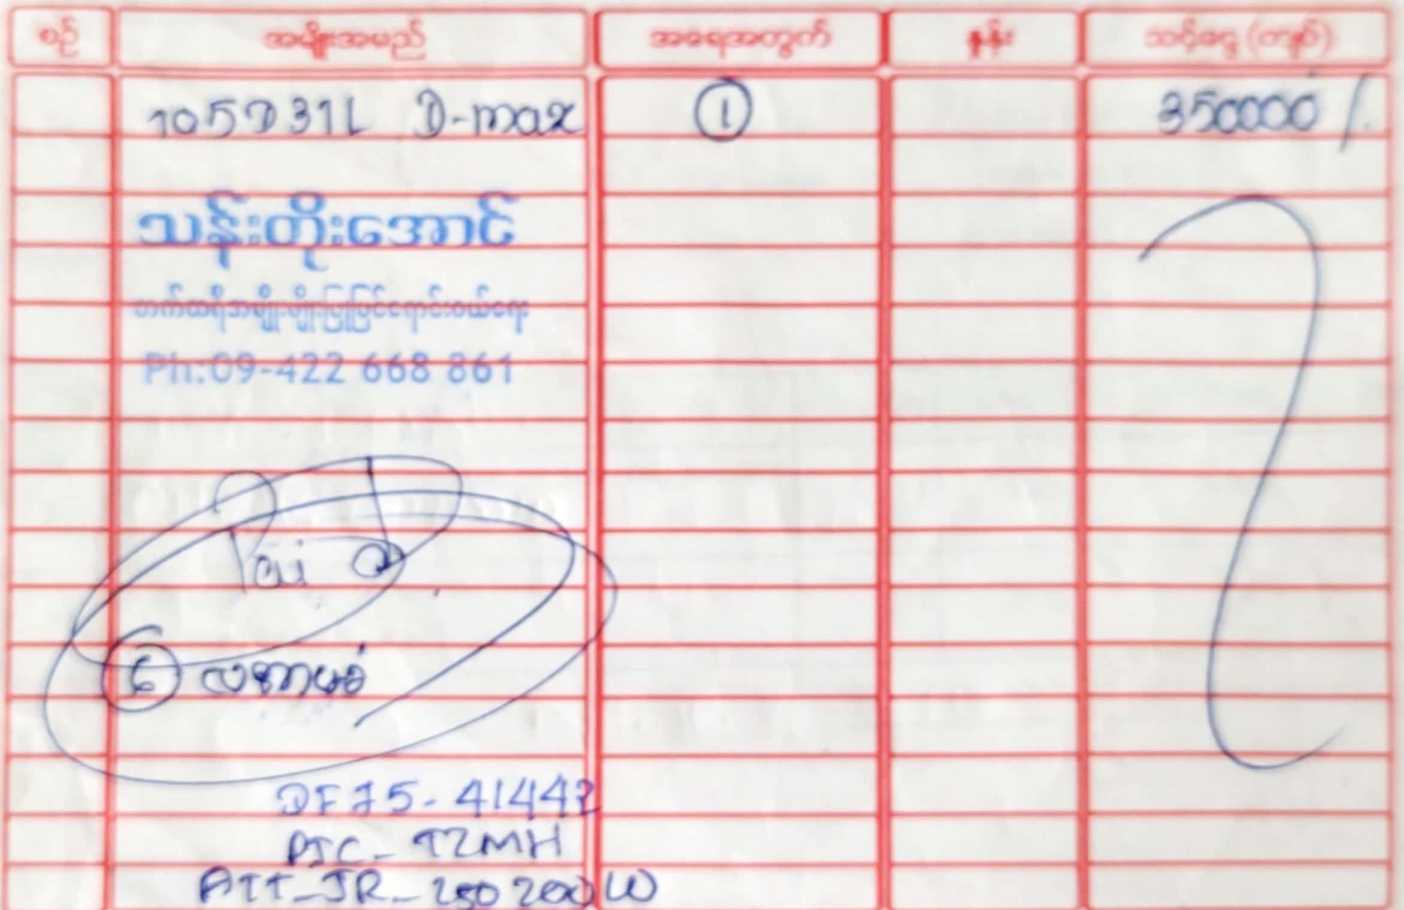 စဉ် အမျိုးအမည် အရေအတွက် နှုန်း သင့်ငွေ (ကျပ်)
105D31L D-max 1 350000/.
သန်းတိုးအောင်
ဘက်ထရီအမျိုးမျိုးပြုပြင်ရောင်းဝယ်ရေး
Ph:09-422 668 861
Paid
6 လအာမခံ
DF75-41442
PJC-TZMH
ATT-JR-250200W